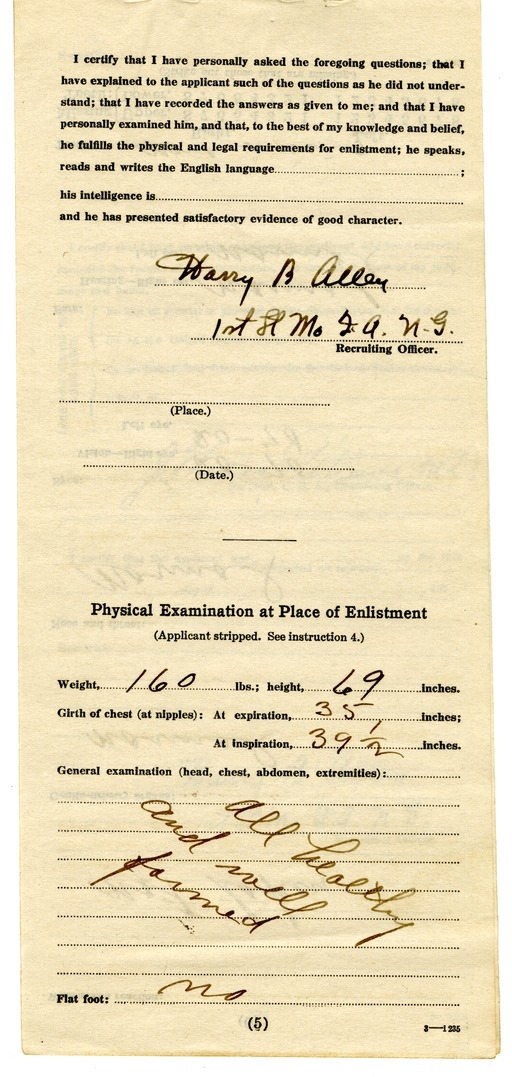 I certify that I have personally asked the foregoing questions; that I
have explained to the applicant such of the questions as he did not under-
stand; that I have recorded the answers as given to me; and that I have
personally examined him, and that, to the best of my knowledge and belief,
he fulfills the physical and legal requirements for enlistment; he speaks,
reads and writes the English language ;
his intelligence is
and he has presented satisfactory evidence of good character.
Harry B Allen
1st Lt Mo F.A. N.G.
Recruiting Officer.
(Place.)
(Date.)
Physical Examination at Place of Enlistment
(Applicant stripped. See instruction 4.)
Weight, 160 lbs.; height, 69 inches.
Girth of chest (at nipples): At expiration, 35 inches;
At inspiration, 39 1/2 inches.
General examination (head, chest, abdomen, extremities):
All healthy
and well
formed
Flat foot: no
(5)
3—1235